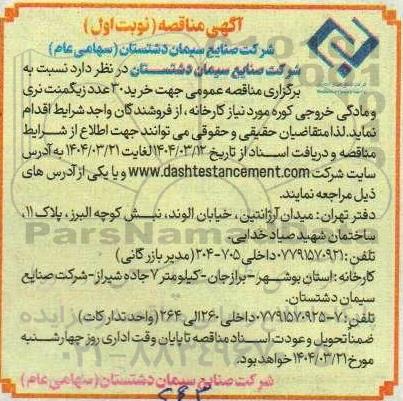 آگهی مناقصه (نوبت اول)
شرکت صنایع سیمان دشتستان (سهامی عام)
شرکت صنایع سیمان دشتستان در نظر دارد نسبت به
برگزاری مناقصه عمومی جهت خرید ۳۰ عدد زیگمنت نری
و مادگی خروجی کوره مورد نیاز کارخانه ، از فروشندگان واجد شرایط اقدام
نماید. لذا متقاضیان حقیقی و حقوقی می توانند جهت اطلاع از شرایط
مناقصه و دریافت اسناد از تاریخ ۱۴۰۴/۰۳/۱۲ لغایت ۱۴۰۴/۰۳/۲۱ به آدرس
سایت شرکت www.dashtestancement.com و یا یکی از آدرس های
ذیل مراجعه نمایند.
دفتر تهران : میدان آرژانتین ، خیابان الوند، نبش کوچه البرز ، پلاک ۱۱،
ساختمان شهید صیاد خدایی.
تلفن : ۰۷۷۹۱۵۷۰۹۲۱ داخلی ۷۰۵-۲۰۴ (مدیر بازرگانی)
کارخانه : استان بوشهر - برازجان - کیلومتر ۷ جاده شیراز - شرکت صنایع
سیمان دشتستان.
تلفن : ۷-۰۷۷۹۱۵۷۰۹۲۵ داخلی ۲۶۰ الی ۲۶۴ (واحد تدارکات)
ضمناً تحویل و عودت اسناد مناقصه تا پایان وقت اداری روز چهارشنبه
مورخ ۱۴۰۴/۰۳/۲۱ خواهد بود.
شرکت صنایع سیمان دشتستان (سهامی عام)